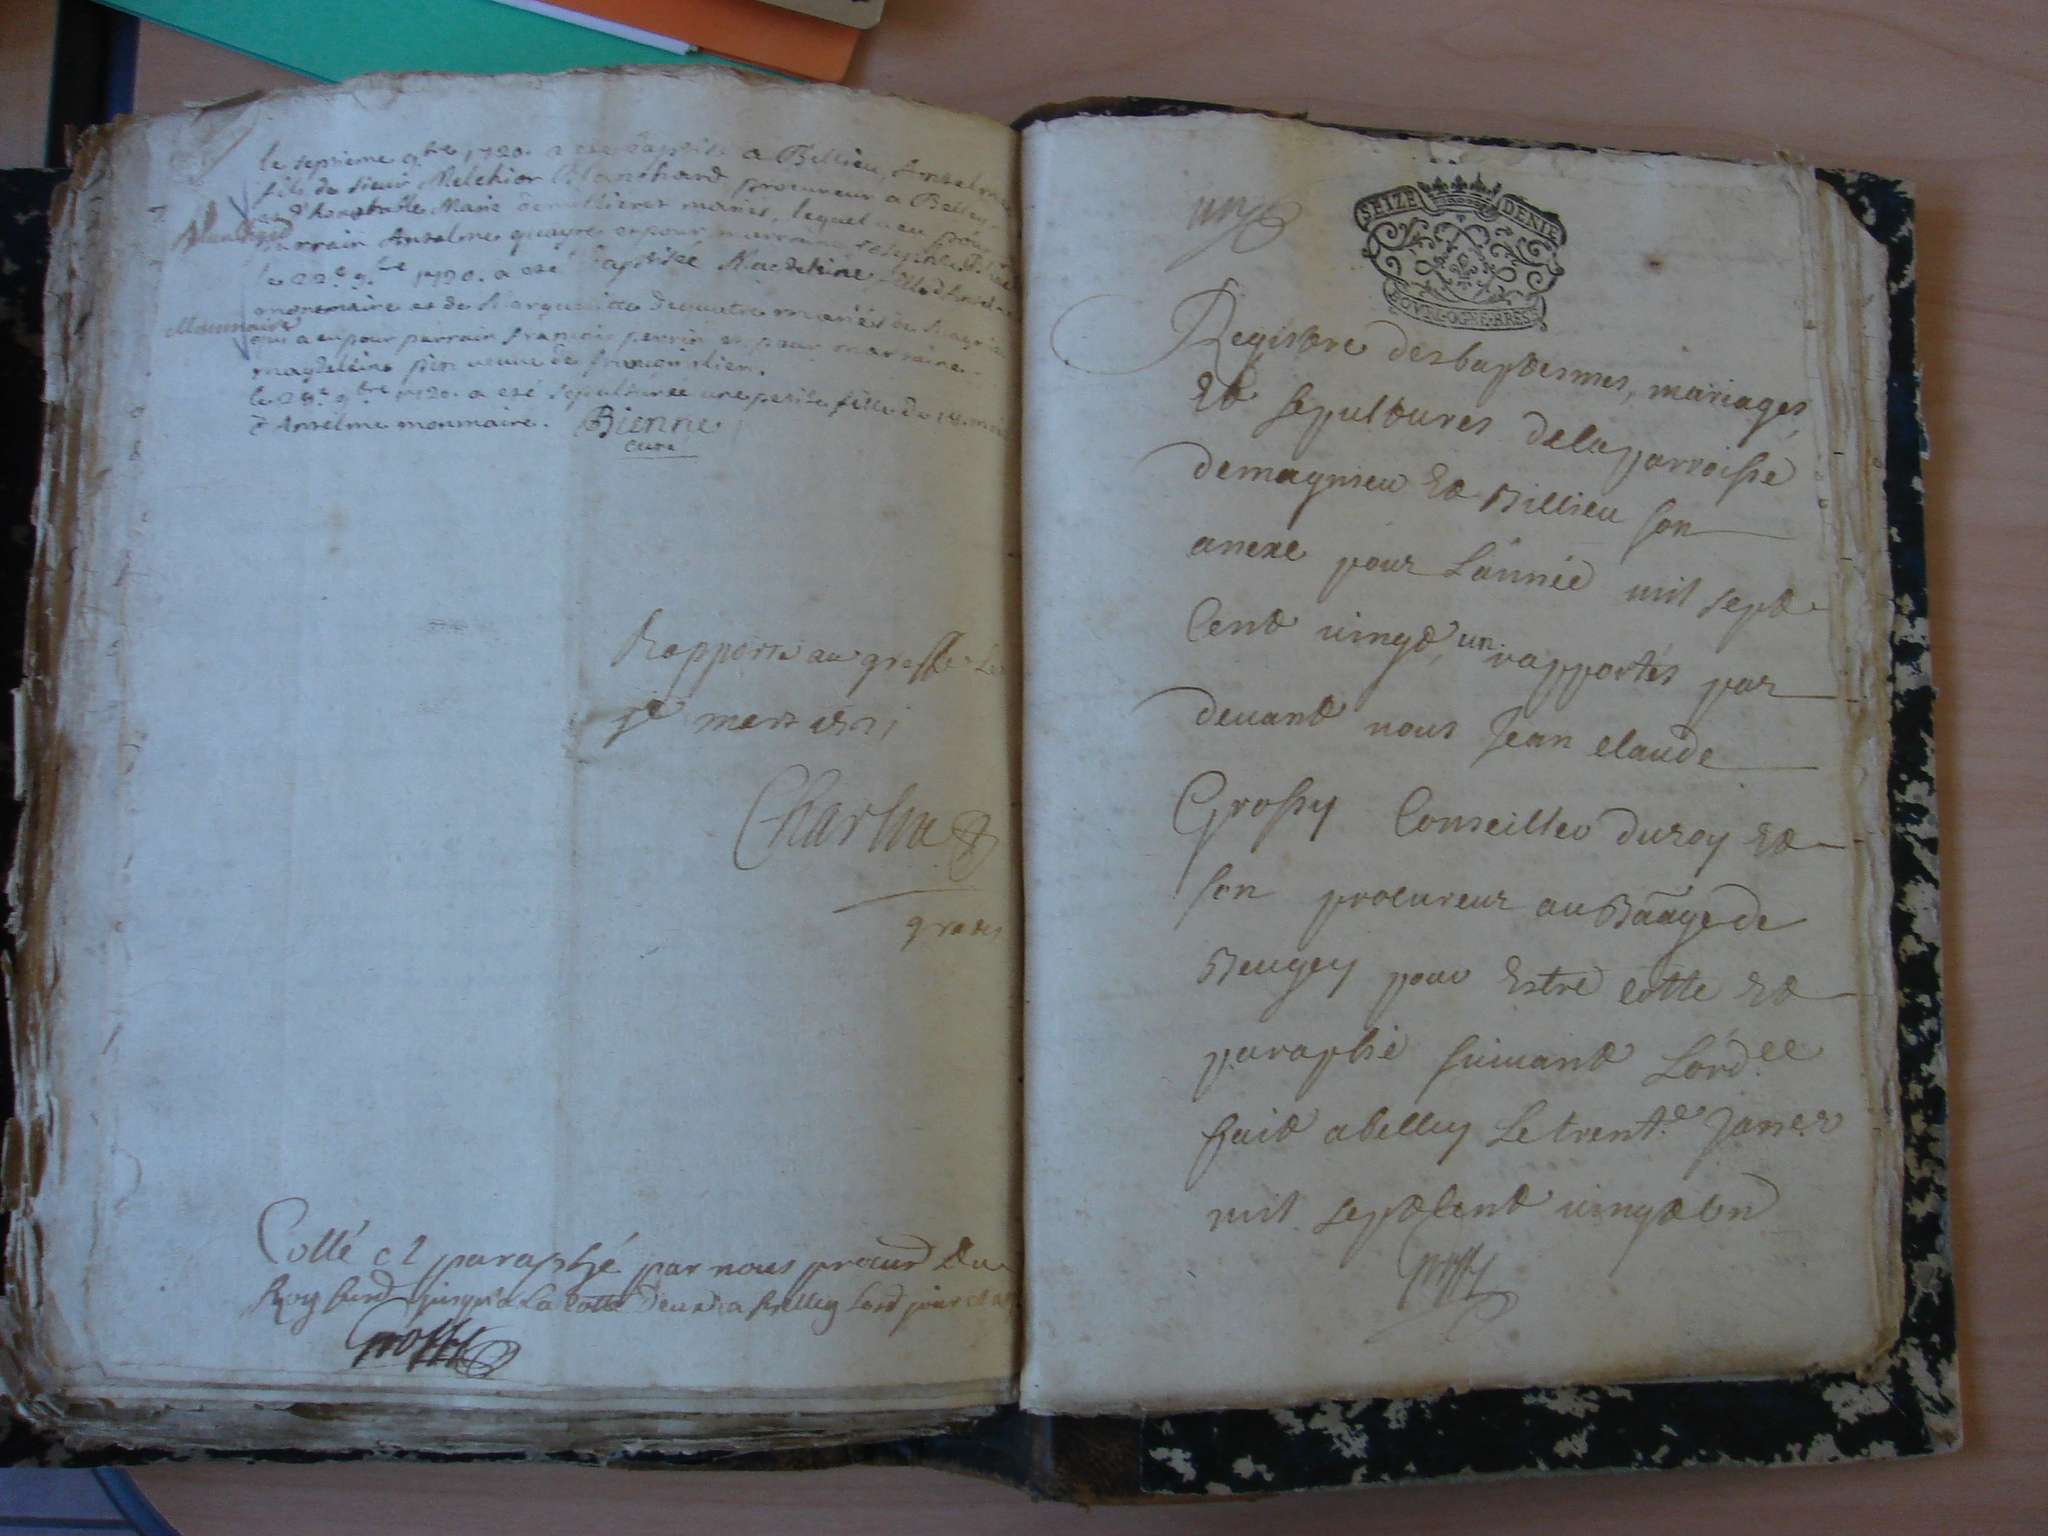 le septieme 9bre 1720. a esté baptisé a Billieu Anselme
fils du sieur Melchior Blanchard procureur a Belley
et d'honorable Marie mariés, lequel a eu pour
Blanchard
parrain Anselme et pour marraine
le 22e 9bre 1720. a esté baptisée Magdeleine fille d'Anselme
monmaire et de Marguerite Dequatre mariés de Magnieu
Monmaire
qui a eu pour parrain françois perrin et pour marraine
magdeleine veuve de
le 28e 9bre 1720. a esté sepulturée une petite fille de
d'Anselme monmaire. Bienne
curé
Rapporté au greffe Le
mars 1721
Charlin
gratis
Cotté et paraphé par nous procur du
Roy jusqu'a La Cotte deux a Belley jour et an
Grossy
un
SEIZE DENIE
BOURGOGNE BRESSE
Registre des baptesmes, mariages,
Et sepultures de la parroisse
de magnieu Et Billieu son
anexe pour L'année mil sept
Cent vingt, un rapportés par
devant nous Jean Claude
Grossy Conseiller du roy Et
son procureur au Baãge de
Beugey pour Estre cotte Et
paraphé suivant L'ord.ce
fait a belley Le trente Janer
mil sept Cent vingt Un
Grossy